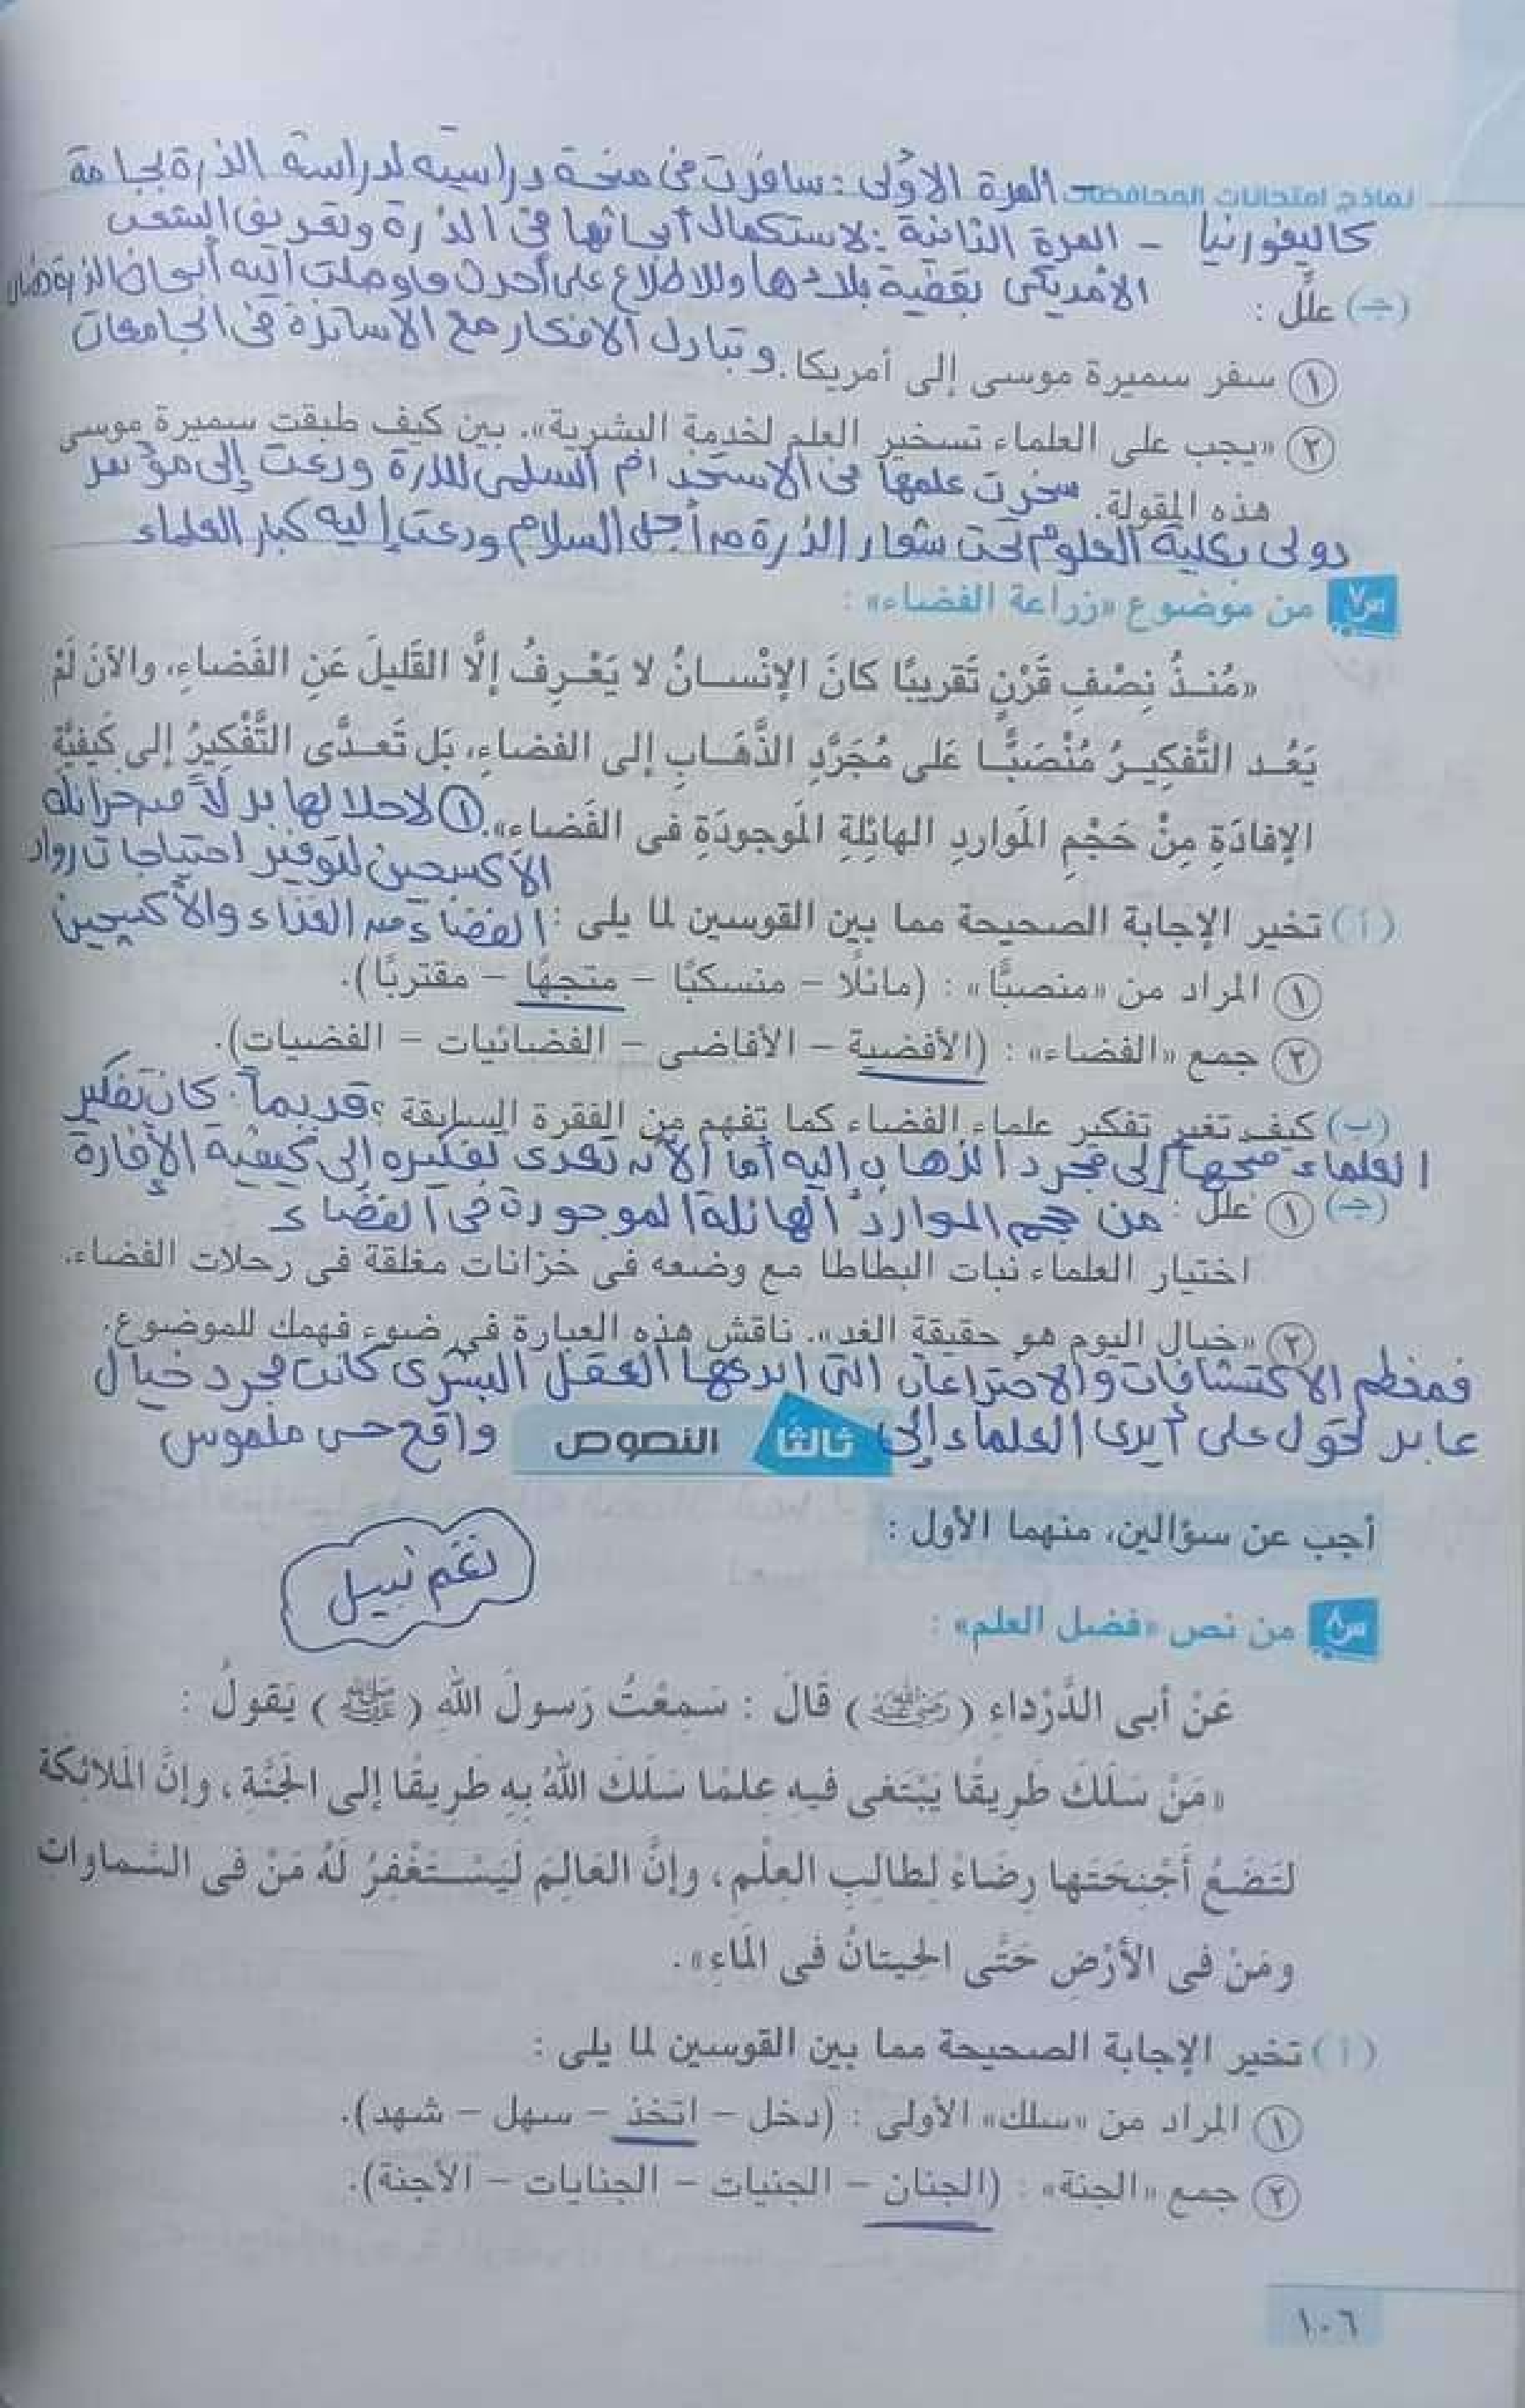 نماذج امتحانات المحافظات
المرة الأولى : سافرت فى منحة دراسية لدراسة الذرة بجامعة
كاليفورنيا – المرة الثانية : لاستكمال أبحاثها فى الذرة وتعريف الشعب
الأمريكى بقضية بلادها وللاطلاع على أحدث ما وصلت إليه أبحاث الذرة
(جـ) علل :
وتبادل الأفكار مع الأساتذة فى الجامعات
١ سفر سميرة موسى إلى أمريكا.
٢ «يجب على العلماء تسخير العلم لخدمة البشرية». بين كيف طبقت سميرة موسى
هذه المقولة. سخرت علمها فى الاستخدام السلمى للذرة ودعت إلى مؤتمر
دولى بكلية العلوم تحت شعار الذرة من أجل السلام ودعت إليه كبار العلماء
س٧ من موضوع «زراعة الفضاء» :
«مُنــذُ نِصْفِ قَرْنٍ تَقريبًا كَانَ الإنْســانُ لا يَعْــرِفُ إلَّا القَليلَ عَنِ الفَضاءِ، والآنَ لَمْ
يَعُــد التَّفكِيــرُ مُنْصَبًّــا عَلى مُجَرَّدِ الذَّهَــابِ إلى الفضاءِ، بَل تَعــدَّى التَّفْكِيرُ إلى كَيفيَّةِ
الإفادَةِ مِنْ حَجْمِ المَوارِدِ الهائِلةِ المَوجودَةِ فى الفَضاءِ». ١ لاحلالها بدلاً من خزانات
الأكسجين لتوفير احتياجات رواد
(أ) تخير الإجابة الصحيحة مما بين القوسين لما يلى : الفضاء من الغذاء والأكسجين
١ المراد من «منصبًّا» : (مائلًا – منسكبًا – متجهًا – مقتربًا).
٢ جمع «الفضاء» : (الأفضية – الأفاضى – الفضائيات – الفضيات).
(ب) كيف تغير تفكير علماء الفضاء كما تفهم من الفقرة السابقة ؟ قديماً : كان تفكير
العلماء متجهاً إلى مجرد الذهاب إليه أما الآن تعدى تفكيره إلى كيفية الإفادة
(جـ) ١ علل : من حجم الموارد الهائلة الموجودة فى الفضاء
اختيار العلماء نبات البطاطا مع وضعه فى خزانات مغلقة فى رحلات الفضاء.
٢ «خيال اليوم هو حقيقة الغد». ناقش هذه العبارة فى ضوء فهمك للموضوع.
فمعظم الاكتشافات والاختراعات التى ابدعها العقل البشرى كانت مجرد خيال
عابر تحول على أيدى العلماء إلى واقع حى ملموس
ثالثًا النصوص
أجب عن سؤالين، منهما الأول :
نغم نبيل
س٨ من نص «فضل العلم» :
عَنْ أبى الدَّرْداءِ (رضي الله عنه) قَالَ : سَمِعْتُ رَسولَ اللهِ (ﷺ) يَقولُ :
«مَنْ سَلَكَ طَرِيقًا يَبْتَغى فيه عِلمًا سَلَكَ اللهُ بِهِ طَرِيقًا إلى الجَنَّةِ، وإنَّ المَلائِكَةَ
لتَضَعُ أَجْنِحَتَها رِضَاءً لطالِبِ العِلْمِ، وإنَّ العَالِمَ لَيَسْــتَغْفِرُ لَهُ مَنْ فى السَّماواتِ
ومَنْ فى الأرْضِ حَتَّى الحِيتانُ فى المَاءِ».
(أ) تخير الإجابة الصحيحة مما بين القوسين لما يلى :
١ المراد من «سلك» الأولى : (دخل – اتخذ – سهل – شهد).
٢ جمع «الجنة» : (الجنان – الجنيات – الجنايات – الأجنة).
١٠٦